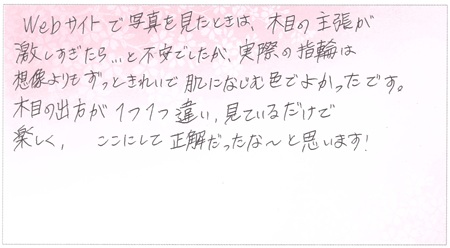 Webサイトで写真を見たときは、木目の主張が
激しすぎたら…と不安でしたが、実際の指輪は
想像よりもずっときれいで肌になじむ色でよかったです。
木目の出方が1つ1つ違い、見ているだけで
楽しく、 ここにして正解だったな〜と思います!